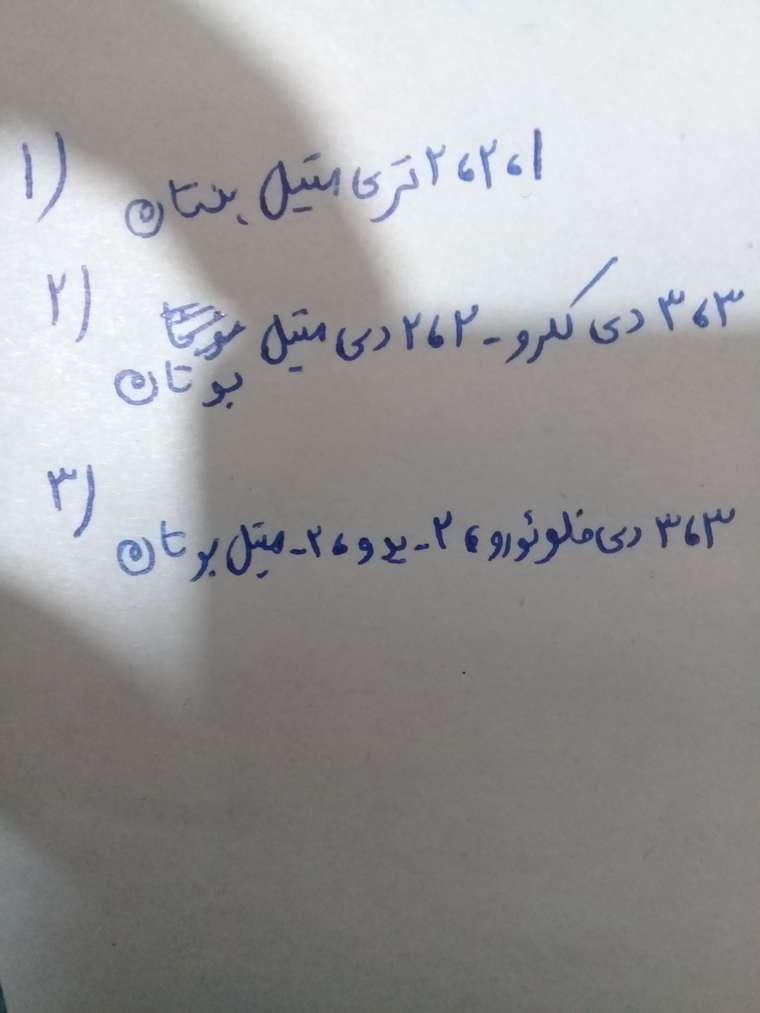 ۱) ۱،۲،۲ تری متیل پنتان
۲) ۳،۳ دی کلرو - ۲،۲ دی متیل
بوتان
۳) ۳،۳ دی فلوئورو، ۲ - ید و، ۲ - متیل بوتان